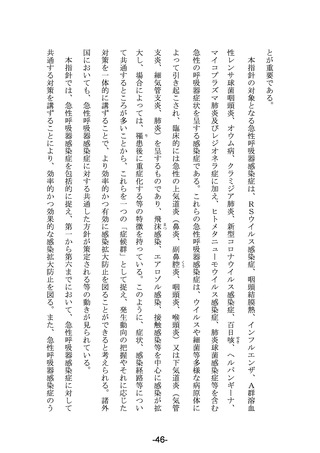 とが重要である。
本指針の対象となる急性呼吸器感染症は、RSウイルス感染症、咽頭結膜熱、インフルエンザ、A群溶血
性レンサ球菌咽頭炎、オウム病、クラミジア肺炎、新型コロナウイルス感染症、百日咳、ヘルパンギーナ、
マイコプラズマ肺炎及びレジオネラ症に加え、ヒトメタニューモウイルス感染症、肺炎球菌感染症等を含む
急性の呼吸器症状を呈する感染症である。これらの急性呼吸器感染症は、ウイルスや細菌等多様な病原体に
よって引き起こされ、臨床的には急性の上気道炎（鼻炎、副鼻腔炎、咽頭炎、喉頭炎）又は下気道炎（気管
支炎、細気管支炎、肺炎）を呈するものであり、飛沫感染、エアロゾル感染、接触感染等を中心に感染が拡
大し、場合によっては、罹患後に重症化する等の特徴を持っている。このように、症状、感染経路等につい
て共通するところが多いことから、これらを一つの「症候群」として捉え、発生動向の把握やそれに応じた
対策を一体的に講ずることで、より効率的かつ有効に感染拡大防止を図ることができると考えられる。諸外
国においても、急性呼吸器感染症に対する共通した方針が策定される等の動きが見られている。
本指針では、急性呼吸器感染症を包括的に捉え、第一から第六までにおいて、急性呼吸器感染症に対して
共通する対策を講ずることにより、効率的かつ効果的な感染拡大防止を図る。また、急性呼吸器感染症のう
-46-